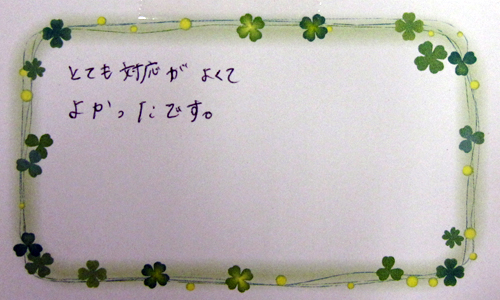 とても対応がよくて
よかったです。